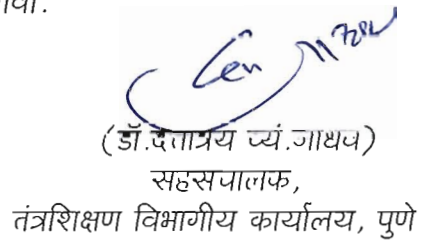 (डॉ.दत्तात्रय ज्यं.जाधव)
सहसंचालक,
तंत्रशिक्षण विभागीय कार्यालय, पुणे